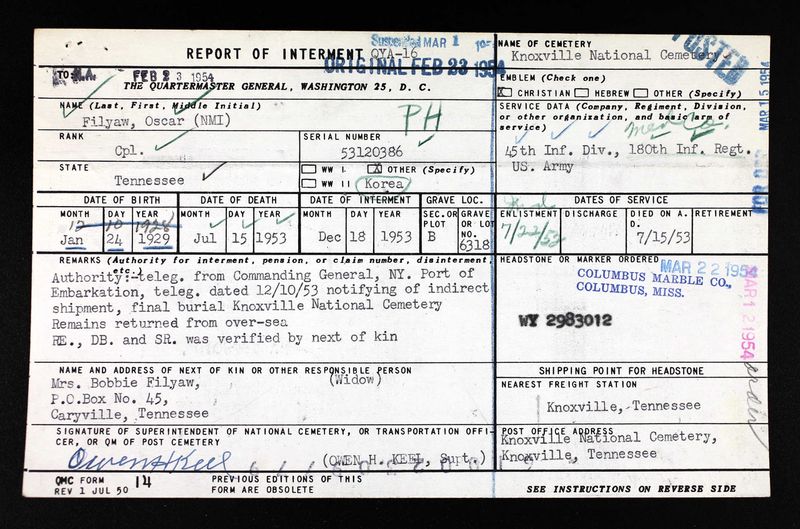 Suspended MAR 1
REPORT OF INTERMENT QYA-16
ORIGINAL FEB 23 1954
POSTED
TO: N.A. FEB 23 1954
THE QUARTERMASTER GENERAL, WASHINGTON 25, D. C.
NAME (Last, First, Middle Initial)
Filyaw, Oscar (NMI)
PH
RANK
Cpl.
SERIAL NUMBER
53120386
STATE
Tennessee
WW I X OTHER (Specify)
WW II Korea
NAME OF CEMETERY
Knoxville National Cemetery
EMBLEM (Check one)
X CHRISTIAN HEBREW OTHER (Specify)
SERVICE DATA (Company, Regiment, Division, or other organization, and basic arm of service)
45th Inf. Div., 180th Inf. Regt.
US. Army
MAR 15 1954
DATE OF BIRTH
MONTH DAY YEAR
12 10 1928
Jan 24 1929
DATE OF DEATH
MONTH DAY YEAR
Jul 15 1953
DATE OF INTERMENT
MONTH DAY YEAR
Dec 18 1953
GRAVE LOC.
SEC. OR PLOT
B
GRAVE OR LOT NO.
6318
DATES OF SERVICE
ENLISTMENT DISCHARGE DIED ON A. D. RETIREMENT
7/22/52 7/15/53
REMARKS (Authority for interment, pension, or claim number, disinterment, etc.)
Authority:-teleg. from Commanding General, NY. Port of
Embarkation, teleg. dated 12/10/53 notifying of indirect
shipment, final burial Knoxville National Cemetery
Remains returned from over-sea
RE., DB. and SR. was verified by next of kin
HEADSTONE OR MARKER ORDERED MAR 22 1954
COLUMBUS MARBLE CO.,
COLUMBUS, MISS.
WY 2983012
MAR 12 1954
NAME AND ADDRESS OF NEXT OF KIN OR OTHER RESPONSIBLE PERSON
Mrs. Bobbie Filyaw, (Widow)
P.O.Box No. 45,
Caryville, Tennessee
SHIPPING POINT FOR HEADSTONE
NEAREST FREIGHT STATION
Knoxville, Tennessee
SIGNATURE OF SUPERINTENDENT OF NATIONAL CEMETERY, OR TRANSPORTATION OFFI-
CER, OR QM OF POST CEMETERY
Owen H Keel
(OWEN H. KEEL, Supt.)
POST OFFICE ADDRESS
Knoxville National Cemetery,
Knoxville, Tennessee
QMC FORM 14
REV 1 JUL 50
PREVIOUS EDITIONS OF THIS
FORM ARE OBSOLETE
SEE INSTRUCTIONS ON REVERSE SIDE